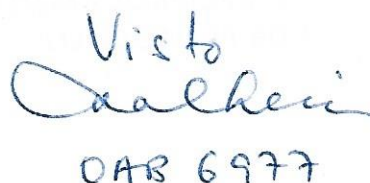 Visto
OAB 6977